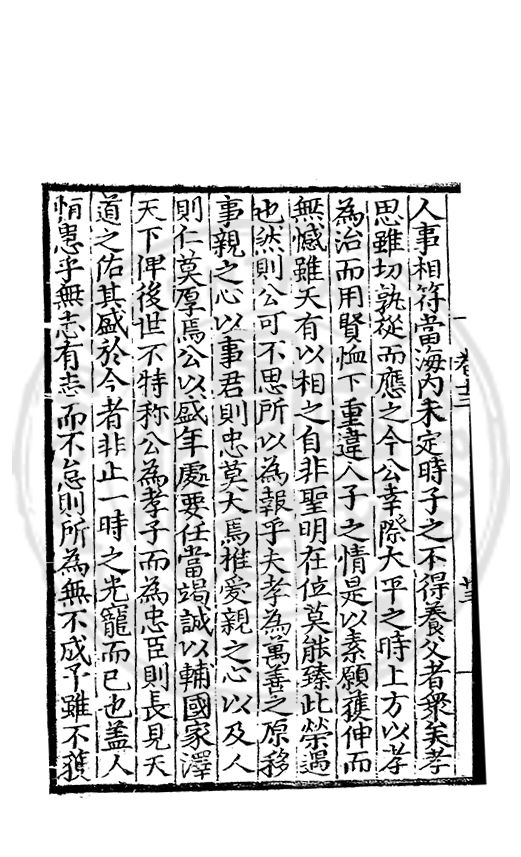 卷十二
廿三
人事相符當海內未定時子之不得養父者衆矣孝
思雖切孰從而應之今公幸際大平之時上方以孝
為治而用賢恤下重違人子之情是以素願獲伸而
無憾雖天有以相之自非聖明在位莫能臻此榮遇
也然則公可不思所以為報乎夫孝為萬善之原移
事親之心以事君則忠莫大焉推愛親之心以及人
則仁莫厚焉公以盛年處要任當竭誠以輔國家澤
天下俾後世不特称公為孝子而為忠臣則長見天
道之佑其盛於今者非止一時之光寵而已也盖人
患乎無志有志而不怠則所為無不成予雖不獲